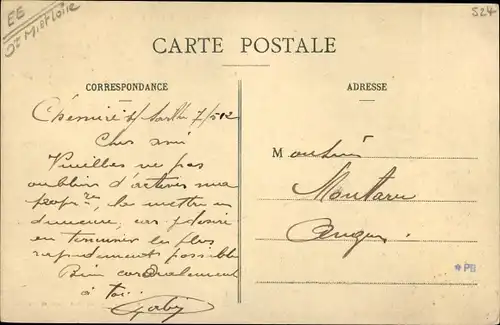 EE
Dt M. et Loire
524
CARTE POSTALE
CORRESPONDANCE
ADRESSE
Chemiré s/ Sarthe 7/5 12
Cher ami
Veuillez ne pas
oublier d'activer ma
la mettre en
demeure, car désire
en terminer le plus
rapidement possible
Bien cordialement
à toi.
Gaby
Monsieur
Angers
*PB